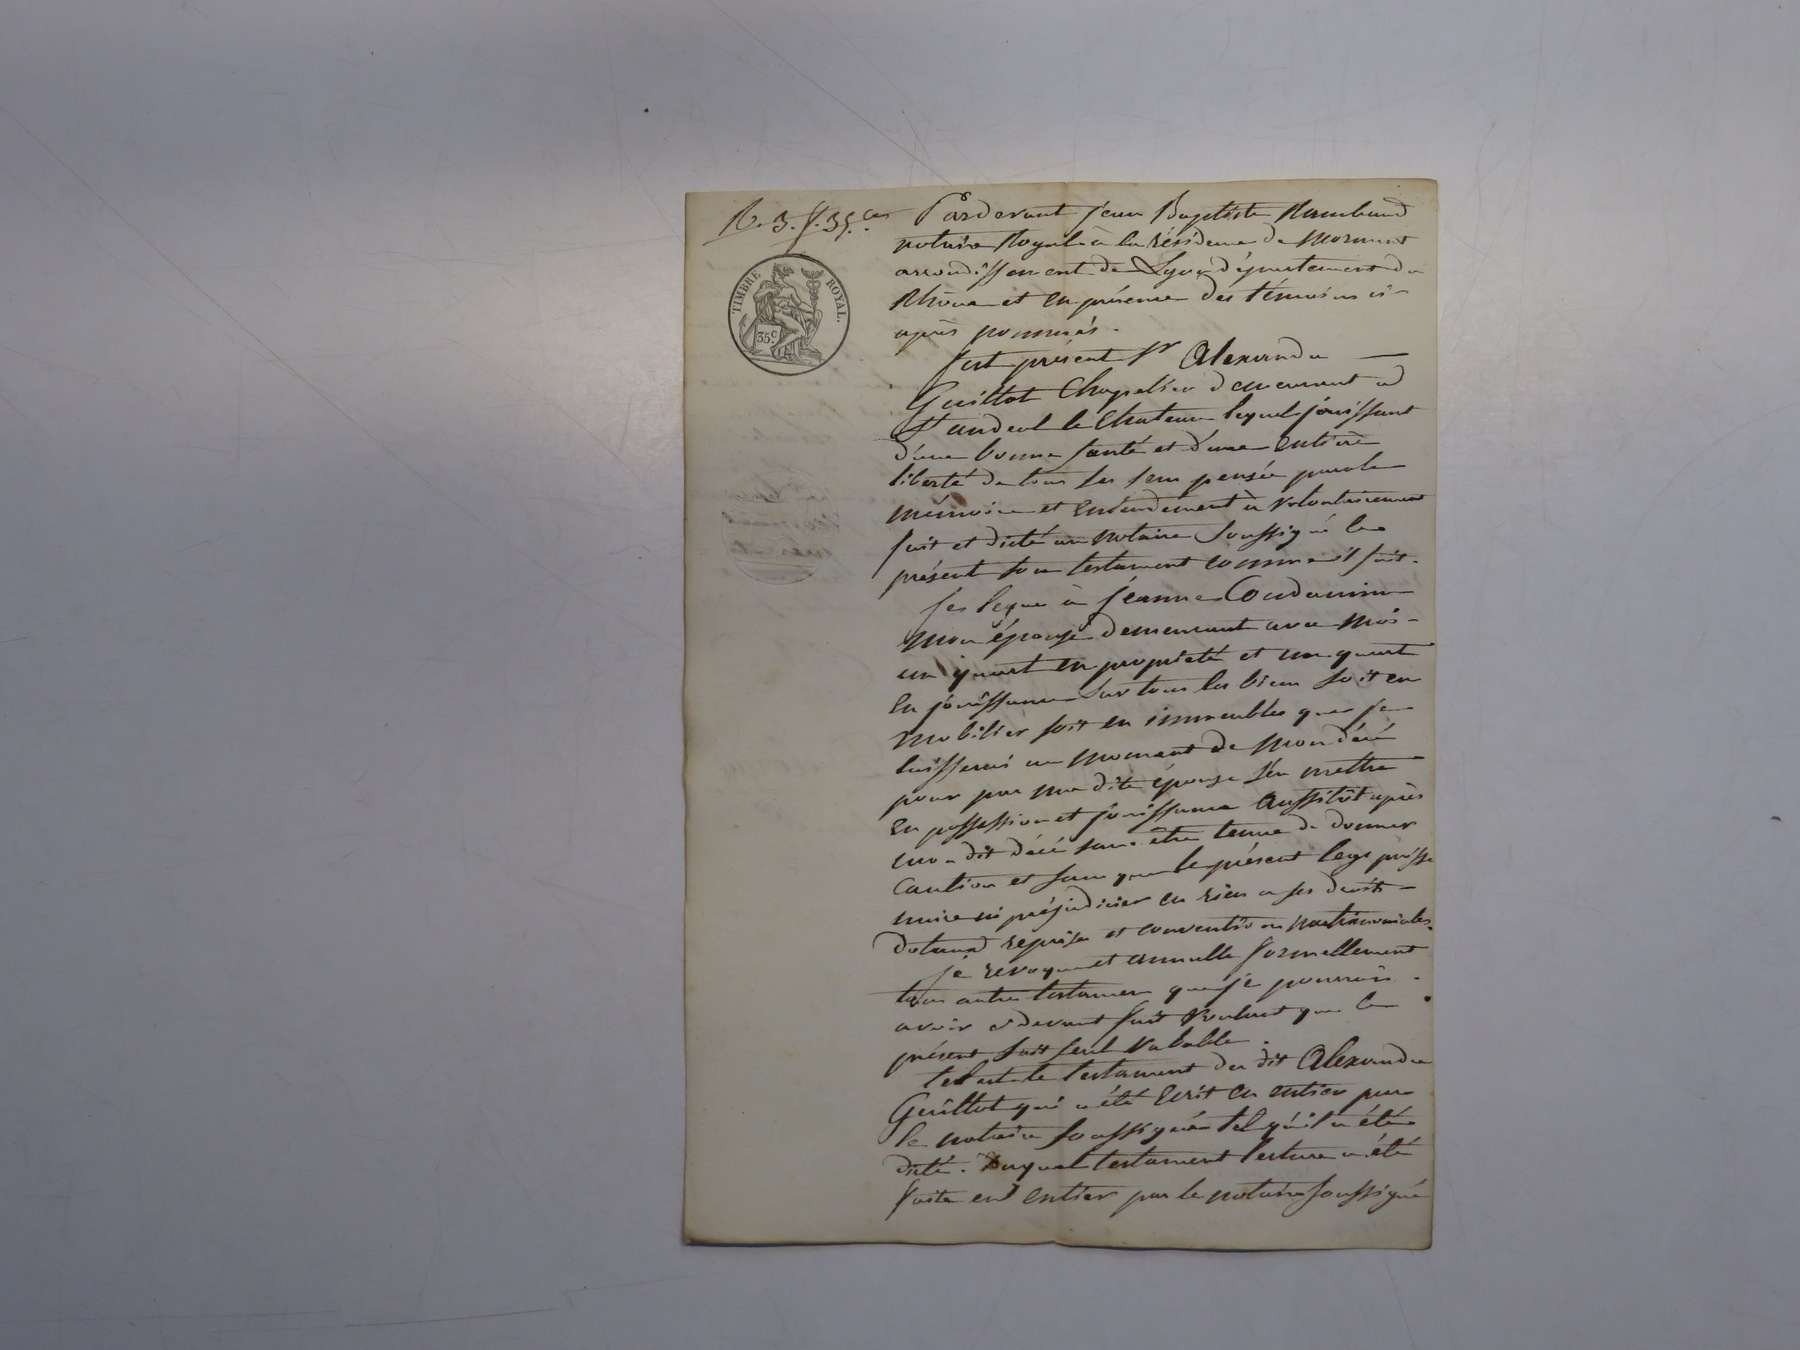 R. 3. f. 35. ces
TIMBRE ROYAL.
35 c.
Pardevant jean Baptiste Rambaud
notaire Royal à la résidence de Mornant
arrondissement de Lyon département du
Rhône et en présence des témoins ci-
après nommés.
fut présent Sr Alexandre
Guillot Chapelier demeurant à
St andeol le Chateau lequel jouissant
d'une bonne santé et d'une entière
liberté de tous ses sens pensée parole
mémoire et entendement a volontairement
fait et dicté au notaire soussigné le
présent son testament comme il suit.
je legue à jeanne Condamin
mon épouse demeurant avec moi -
un quart en propriété et un quart
en jouissance sur tous les biens soit en
mobilier soit en immeubles que je
laisserai au moment de mon décé
pour par ma dite épouse s'en mettre
en possession et jouissance aussitôt après
mon dit décé sans être tenue de donner
caution et sans que le présent legs puisse
nuire ni préjudicier en rien a ses droits -
dotaux reprise et convention matrimoniales.
je revoque et annulle formellement
tous autre testamen que je pourrais
avoir cidevant fait voulant que le
présent soit seul valable.
tel est le testament du dit Alexandre
Guillot qui a été écrit en entier par
le notaire soussigné tel qu'il a été
dicté. Duquel testament lecture a été
faite en entier par le notaire soussigné